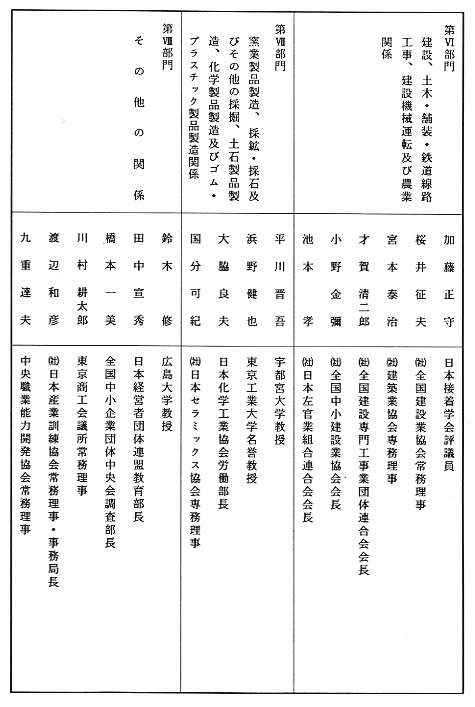 第Ⅵ部門
建設、土木・舗装・鉄道線路
工事、建設機械運転及び農業
関係
加藤正守 日本接着学会評議員
桜井征夫 ㈳全国建設業協会常務理事
宮本泰治 ㈳建築業協会専務理事
才賀清二郎 ㈳全国建設専門工事業団体連合会会長
小野金彌 ㈳全国中小建設業協会会長
池本孝 ㈳日本左官業組合連合会会長
第Ⅶ部門
窯業製品製造、採鉱・採石及
びその他の採掘、土石製品製
造、化学製品製造及びゴム・
プラスチック製品製造関係
平川晋吾 宇都宮大学教授
浜野健也 東京工業大学名誉教授
大脇良夫 日本化学工業協会労働部長
国分可紀 ㈳日本セラミックス協会専務理事
第Ⅷ部門
その他の関係
鈴木修 広島大学教授
田中宣秀 日本経営者団体連盟教育部長
橋本一美 全国中小企業団体中央会調査部長
川村耕太郎 東京商工会議所常務理事
渡辺和彦 ㈳日本産業訓練協会常務理事・事務局長
九重達夫 中央職業能力開発協会常務理事